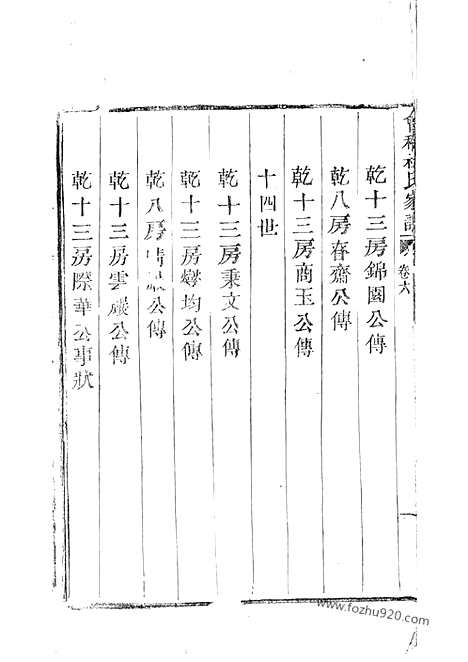 會稽 氏家譜 卷六
乾十三房錦園公傳
乾八房春齋公傳
乾十三房商玉公傳
十四世
乾十三房秉文公傳
乾十三房燮均公傳
乾八房 公傳
乾十三房雲巖公傳
乾十三房際華公事狀
www.fozhu920.com